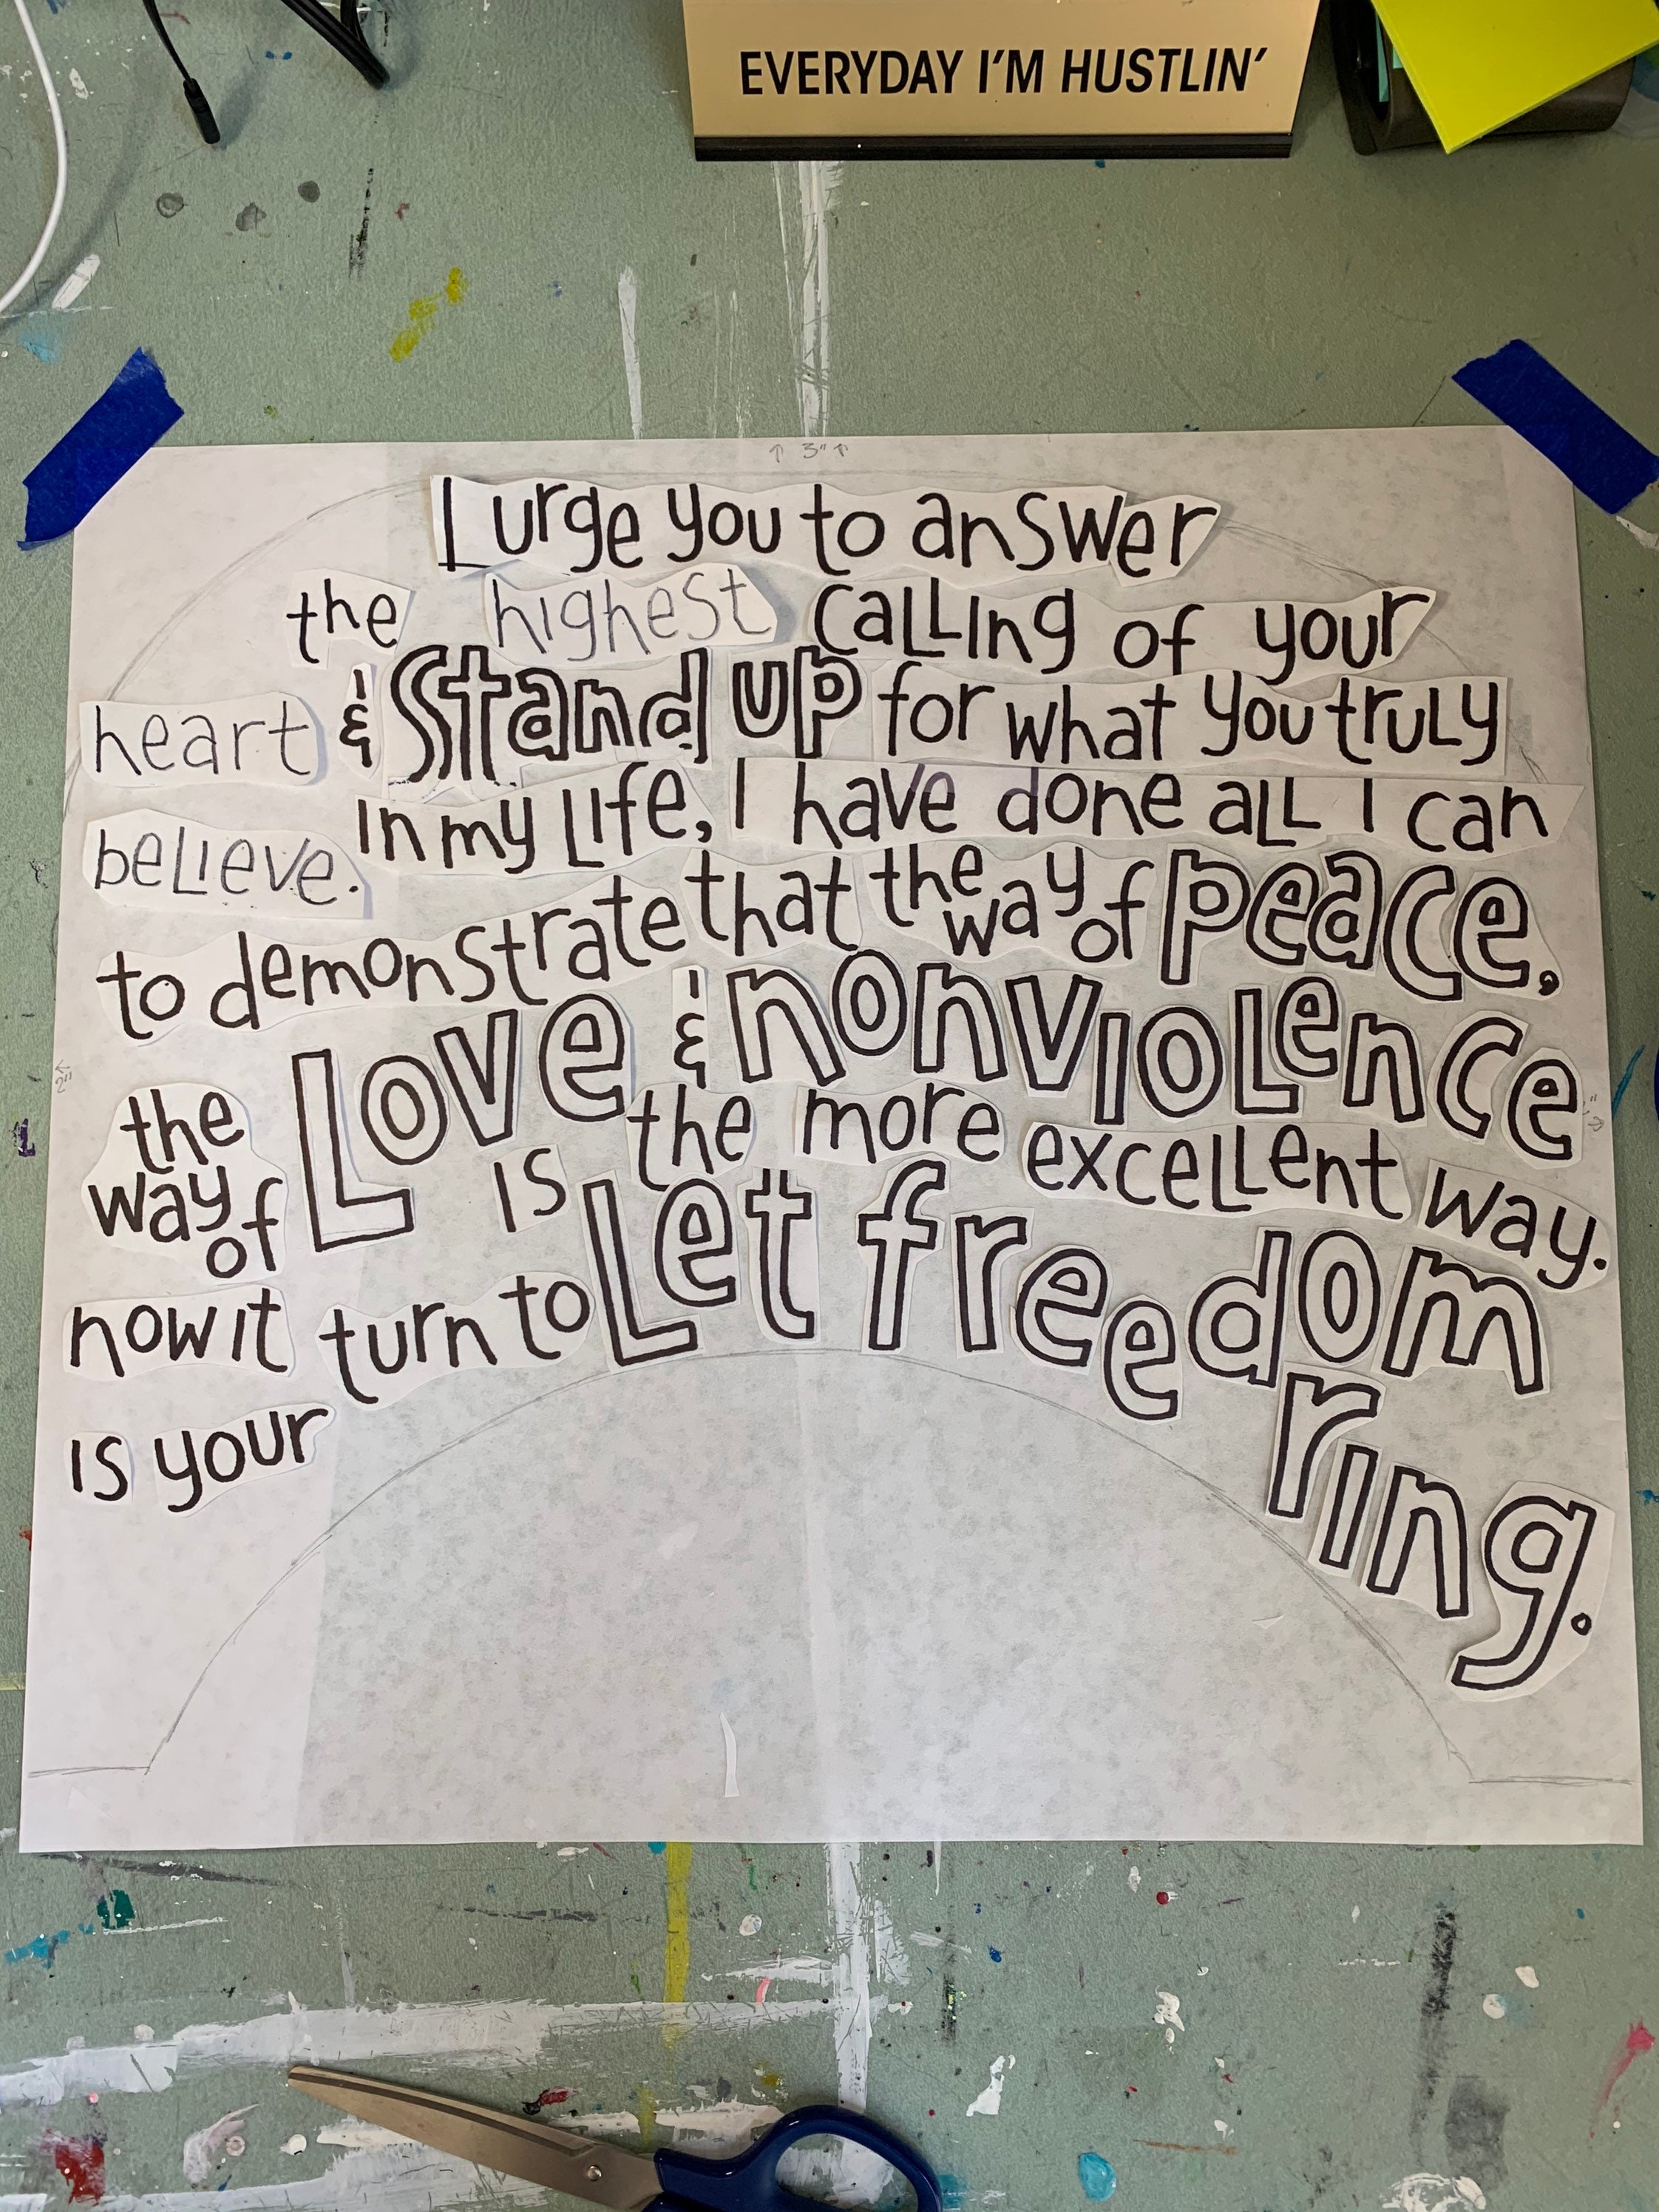 EVERYDAY I'M HUSTLIN'
↑ 3" ↑
I urge you to answer
the highest calling of your
heart & Stand up for what you truly
believe. In my Life, I have done all I can
to demonstrate that the way of peace,
the way of Love & nonviolence
is the more excellent way.
now it is your turn to Let freedom
ring.
2"